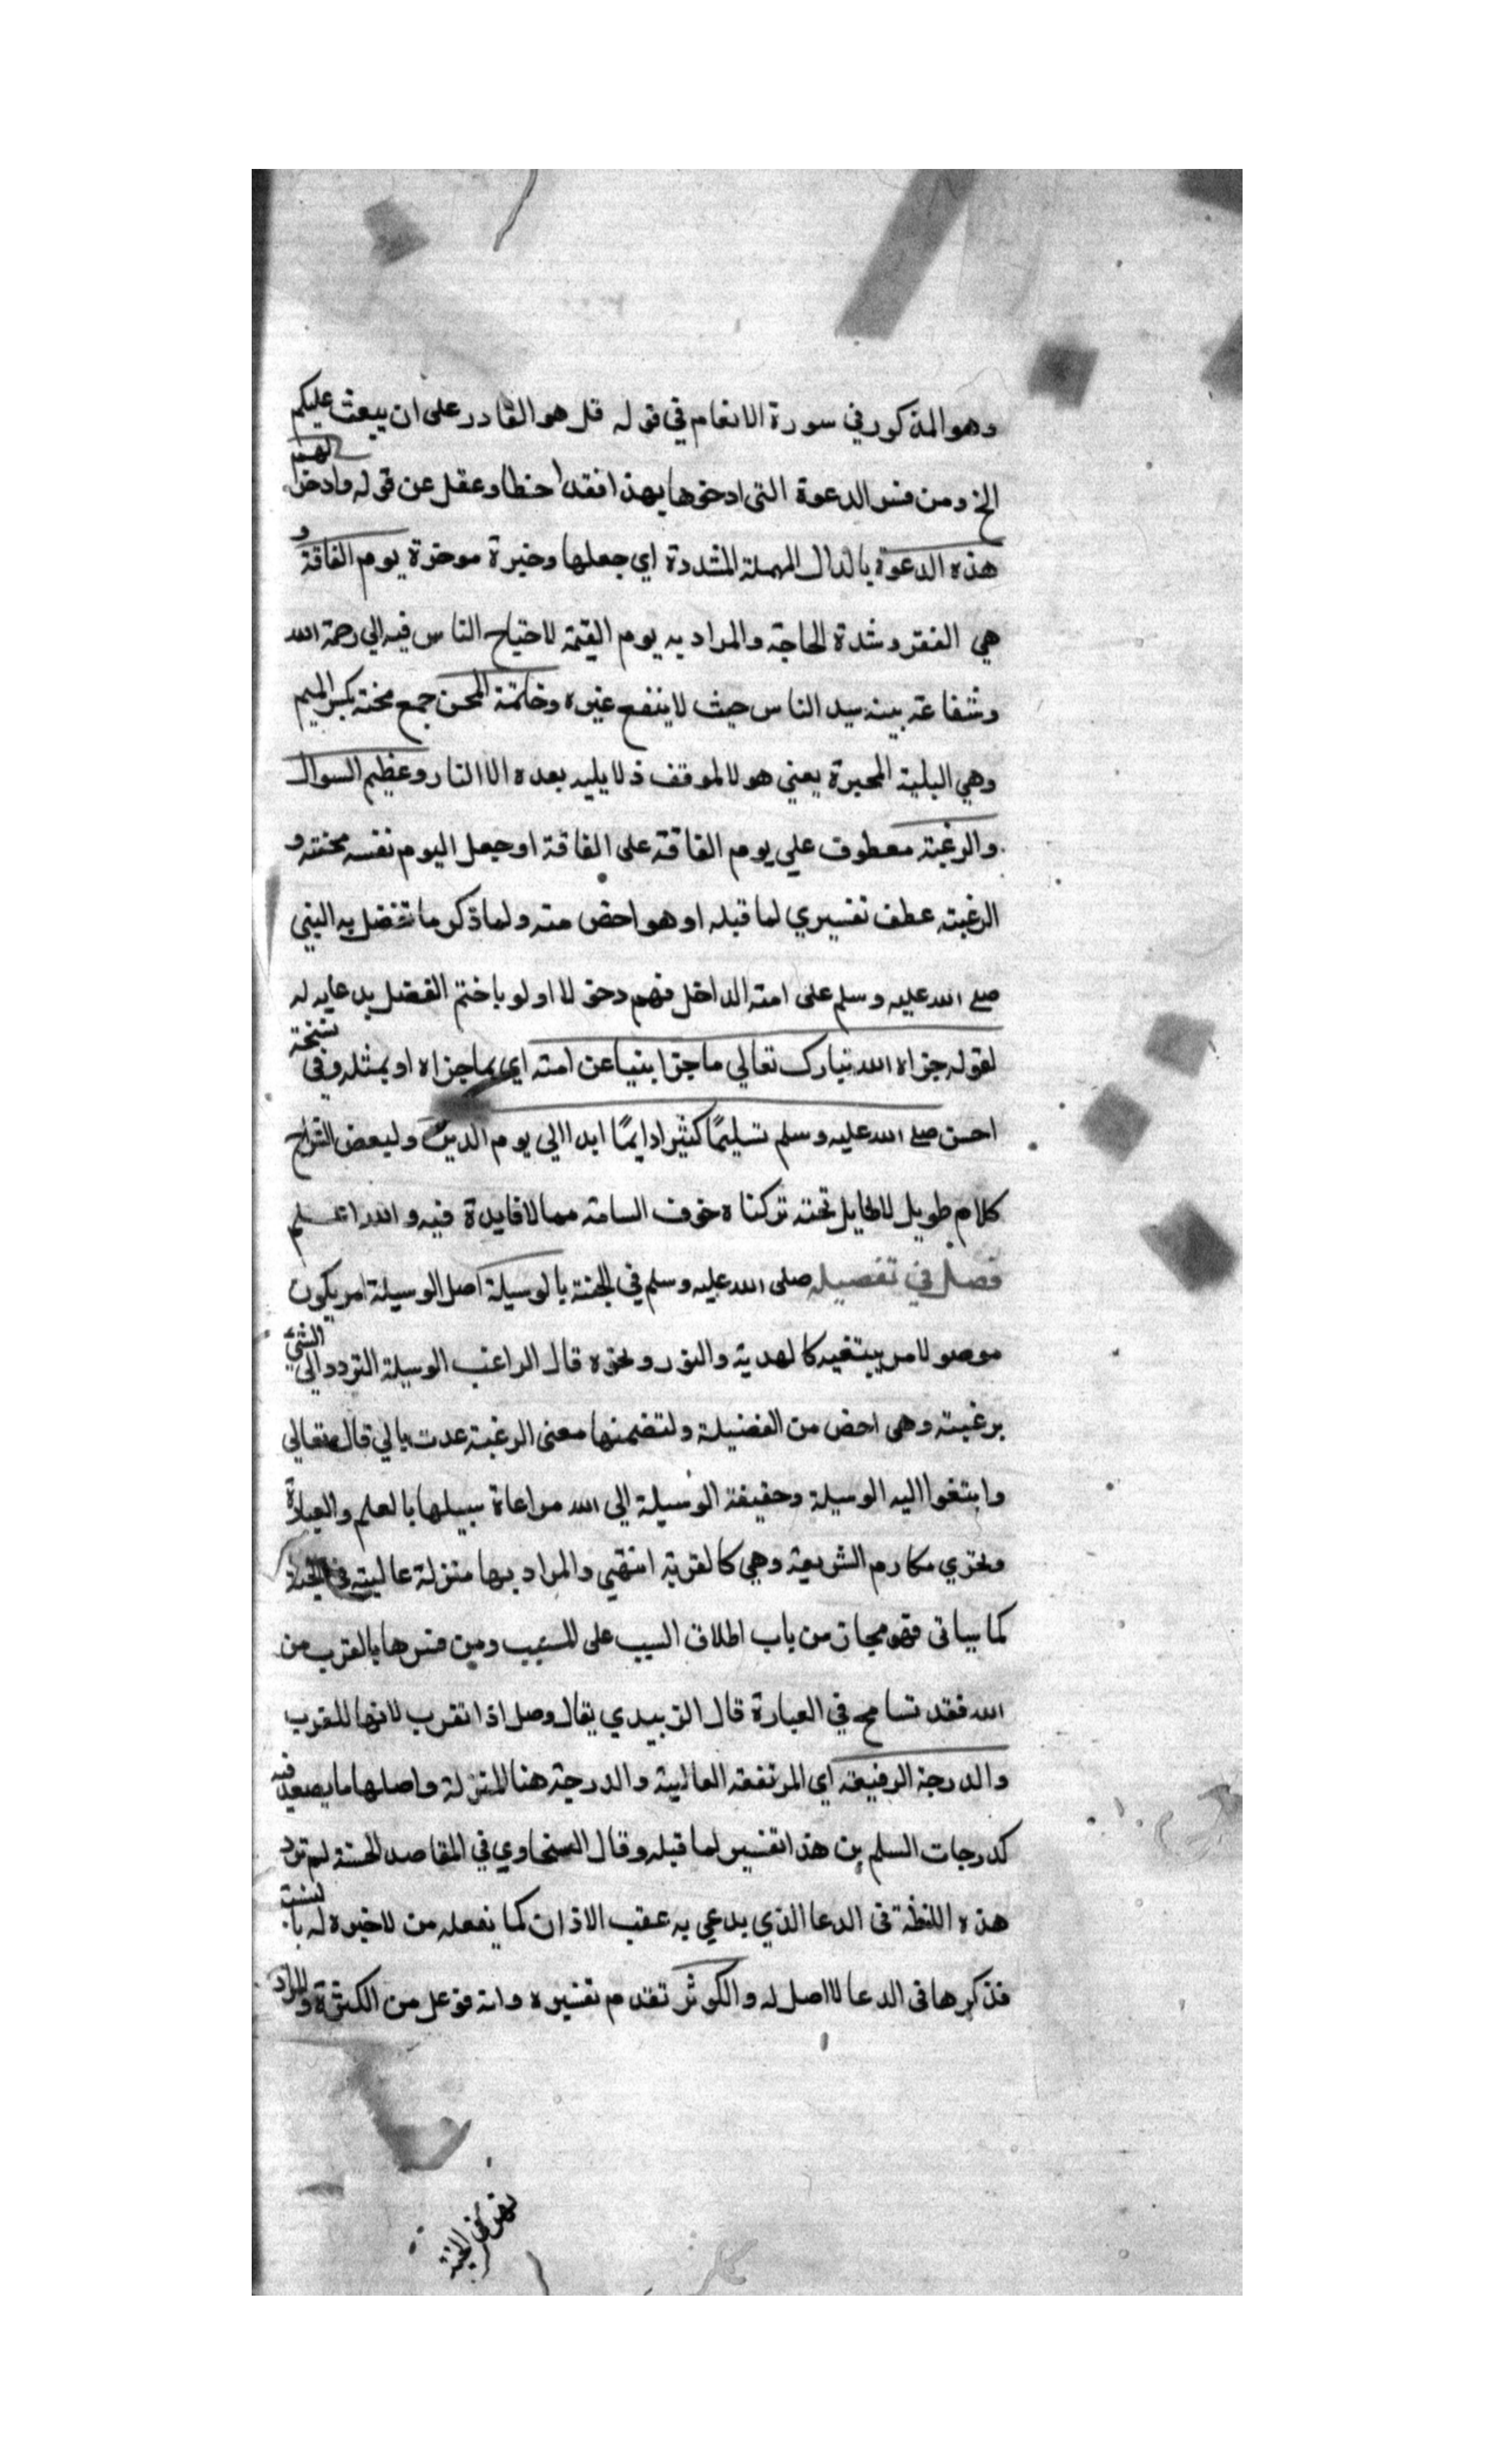 وهو المذكور في سورة الانعام في قوله قل هو القادر على ان يبعث عليكم
الخ ومن فسر الدعوة التي ادخرها بهذا فقد اخطا وغفل عن قوله وادخر لهم
هذه الدعوة بالدال المهملة المشددة اي جعلها دخيرة موخرة يوم الفاقة و
هي الفقر وشدة الحاجة والمراد به يوم القيمة لاحتياج الناس فيه الي رحمة الله
وشفاعة سيد الناس حيث لا ينفع غيره وخاتمة المحن جمع محنة بكسر الميم
وهي البلية المحيرة يعني هو الموقف لا يليه بعده الا النار وعظيم السوال
والرغبة معطوف علي يوم الفاقة على الفاقة او جعل اليوم نفسه محنة و
الرغبة عطف تفسيري لما قبله او هو اخص منه ولما ذكر ما تفضل به النبي
صلے الله عليه وسلم على امته الداخل فيهم دخولا اوليا ختم الفصل بدعايه له
لقوله جزاه الله تبارك تعالي ما جزا نبيا عن امته اي بما جزاه او بمثله وفي نسخة
احسن صلے الله عليه وسلم تسليمًا كثيرا دايمًا ابدا الي يوم الدين ولبعض الشراح
كلام طويل لا طايل تحته تركناه خوف السامة مما لا فايدة فيه والله اعلم
فصل في تفضيله صلى الله عليه وسلم في الجنة بالوسيلة اصل الوسيلة امر يكون
موصولا مر يبتغيه كالهدية والنور ونحوه قال الراغب الوسيلة التردد الي الشئ
برغبة وهى اخص من الفضيلة ولتضمنها معنى الرغبة عدت بالي قال تعالي
وابتغوا اليه الوسيلة وحقيقة الوسيلة الي الله مراعاة سبيلها بالعلم والعبادة
وتحري مكارم الشريعة وهي كالقربة انتهي والمراد بها منزلة عالية في الجنة
كما سياتى فهو مجاز من باب اطلاق السبب على المسبب ومن فسرها بالقرب من
الله فقد تسامح في العبارة قال الزبيدي يقال وصل اذا تقرب لانها للقرب
والدرجة الرفيعة اي المرتفعة العالية والدرجة هنا المنزلة واصلها ما يصعد فيه
كدرجات السلم هذا تفسير لما قبله وقال السخاوي في المقاصد الحسنة لم ترد
هذه اللفظة فى الدعا الذي يدعي به عقب الاذان كما يفعله من لا خبرة له بالسنة
فذكرها فى الدعا لا اصل له والكوثر تقدم تفسيره وانه فوعل من الكثرة والمراد
نهر في الجنة